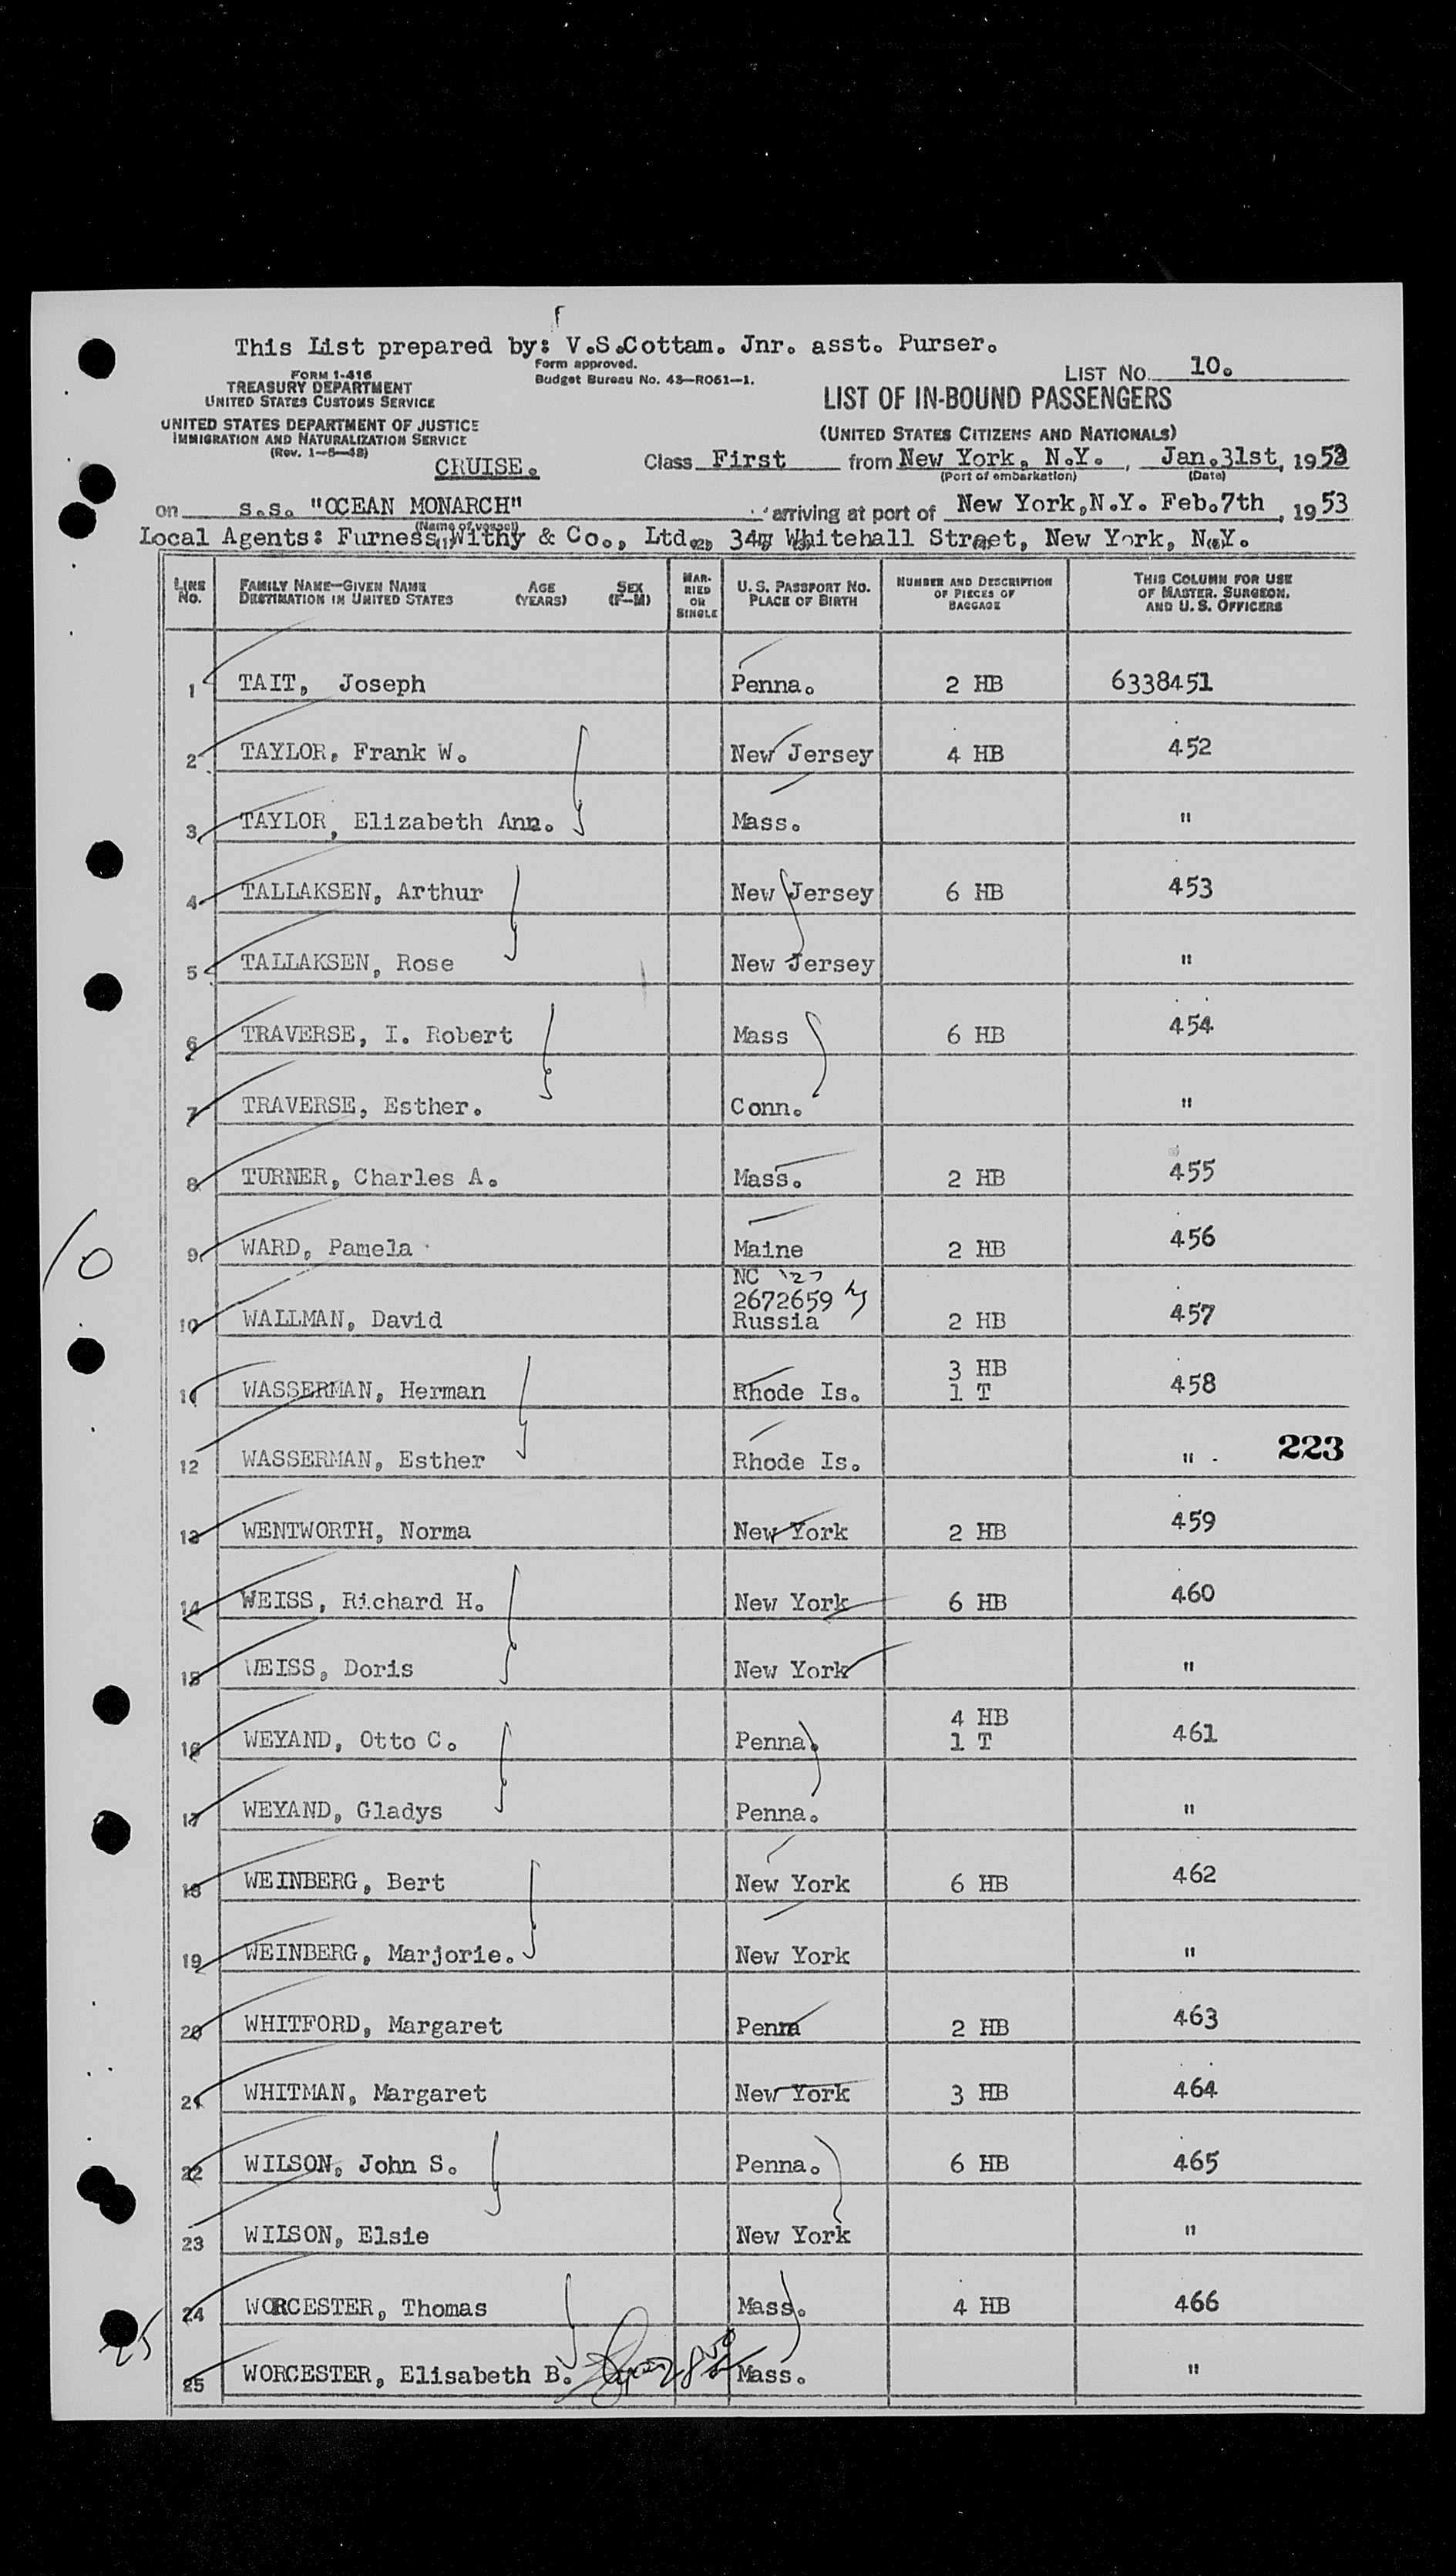 This List prepared by: V.S.Cottam. Jnr. asst. Purser.
Form approved.
Budget Bureau No. 43—R061—1.
LIST NO. 10.
FORM I-416
TREASURY DEPARTMENT
UNITED STATES CUSTOMS SERVICE
UNITED STATES DEPARTMENT OF JUSTICE
IMMIGRATION AND NATURALIZATION SERVICE
(Rev. 1—5—48)
LIST OF IN-BOUND PASSENGERS
(UNITED STATES CITIZENS AND NATIONALS)
CRUISE. Class First from New York, N.Y. , Jan.31st, 1953
(Port of embarkation) (Date)
on s.s. "OCEAN MONARCH" arriving at port of New York,N.Y. Feb.7th , 1953
(Name of vessel)
Local Agents: Furness, Withy & Co., Ltd., 34, Whitehall Street, New York, N.Y.
LINE No. FAMILY NAME—GIVEN NAME DESTINATION IN UNITED STATES AGE (YEARS) SEX (F—M) MARRIED OR SINGLE U. S. PASSPORT NO. PLACE OF BIRTH NUMBER AND DESCRIPTION OF PIECES OF BAGGAGE THIS COLUMN FOR USE OF MASTER, SURGEON, AND U. S. OFFICERS
1 TAIT, Joseph Penna. 2 HB 6338451
2 TAYLOR, Frank W. New Jersey 4 HB 452
3 TAYLOR, Elizabeth Ann. Mass. "
4 TALLAKSEN, Arthur New Jersey 6 HB 453
5 TALLAKSEN, Rose New Jersey "
6 TRAVERSE, I. Robert Mass 6 HB 454
7 TRAVERSE, Esther. Conn. "
8 TURNER, Charles A. Mass. 2 HB 455
9 WARD, Pamela Maine 2 HB 456
10
NC '27
2672659
10 WALLMAN, David Russia 2 HB 457
3 HB
11 WASSERMAN, Herman Rhode Is. 1 T 458
12 WASSERMAN, Esther Rhode Is. " 223
13 WENTWORTH, Norma New York 2 HB 459
14 WEISS, Richard H. New York 6 HB 460
15 WEISS, Doris New York "
4 HB
16 WEYAND, Otto C. Penna. 1 T 461
17 WEYAND, Gladys Penna. "
18 WEINBERG, Bert New York 6 HB 462
19 WEINBERG, Marjorie. New York "
20 WHITFORD, Margaret Penna 2 HB 463
21 WHITMAN, Margaret New York 3 HB 464
22 WILSON, John S. Penna. 6 HB 465
23 WILSON, Elsie New York "
24 WORCESTER, Thomas Mass. 4 HB 466
25
25 WORCESTER, Elisabeth B. Mass. "